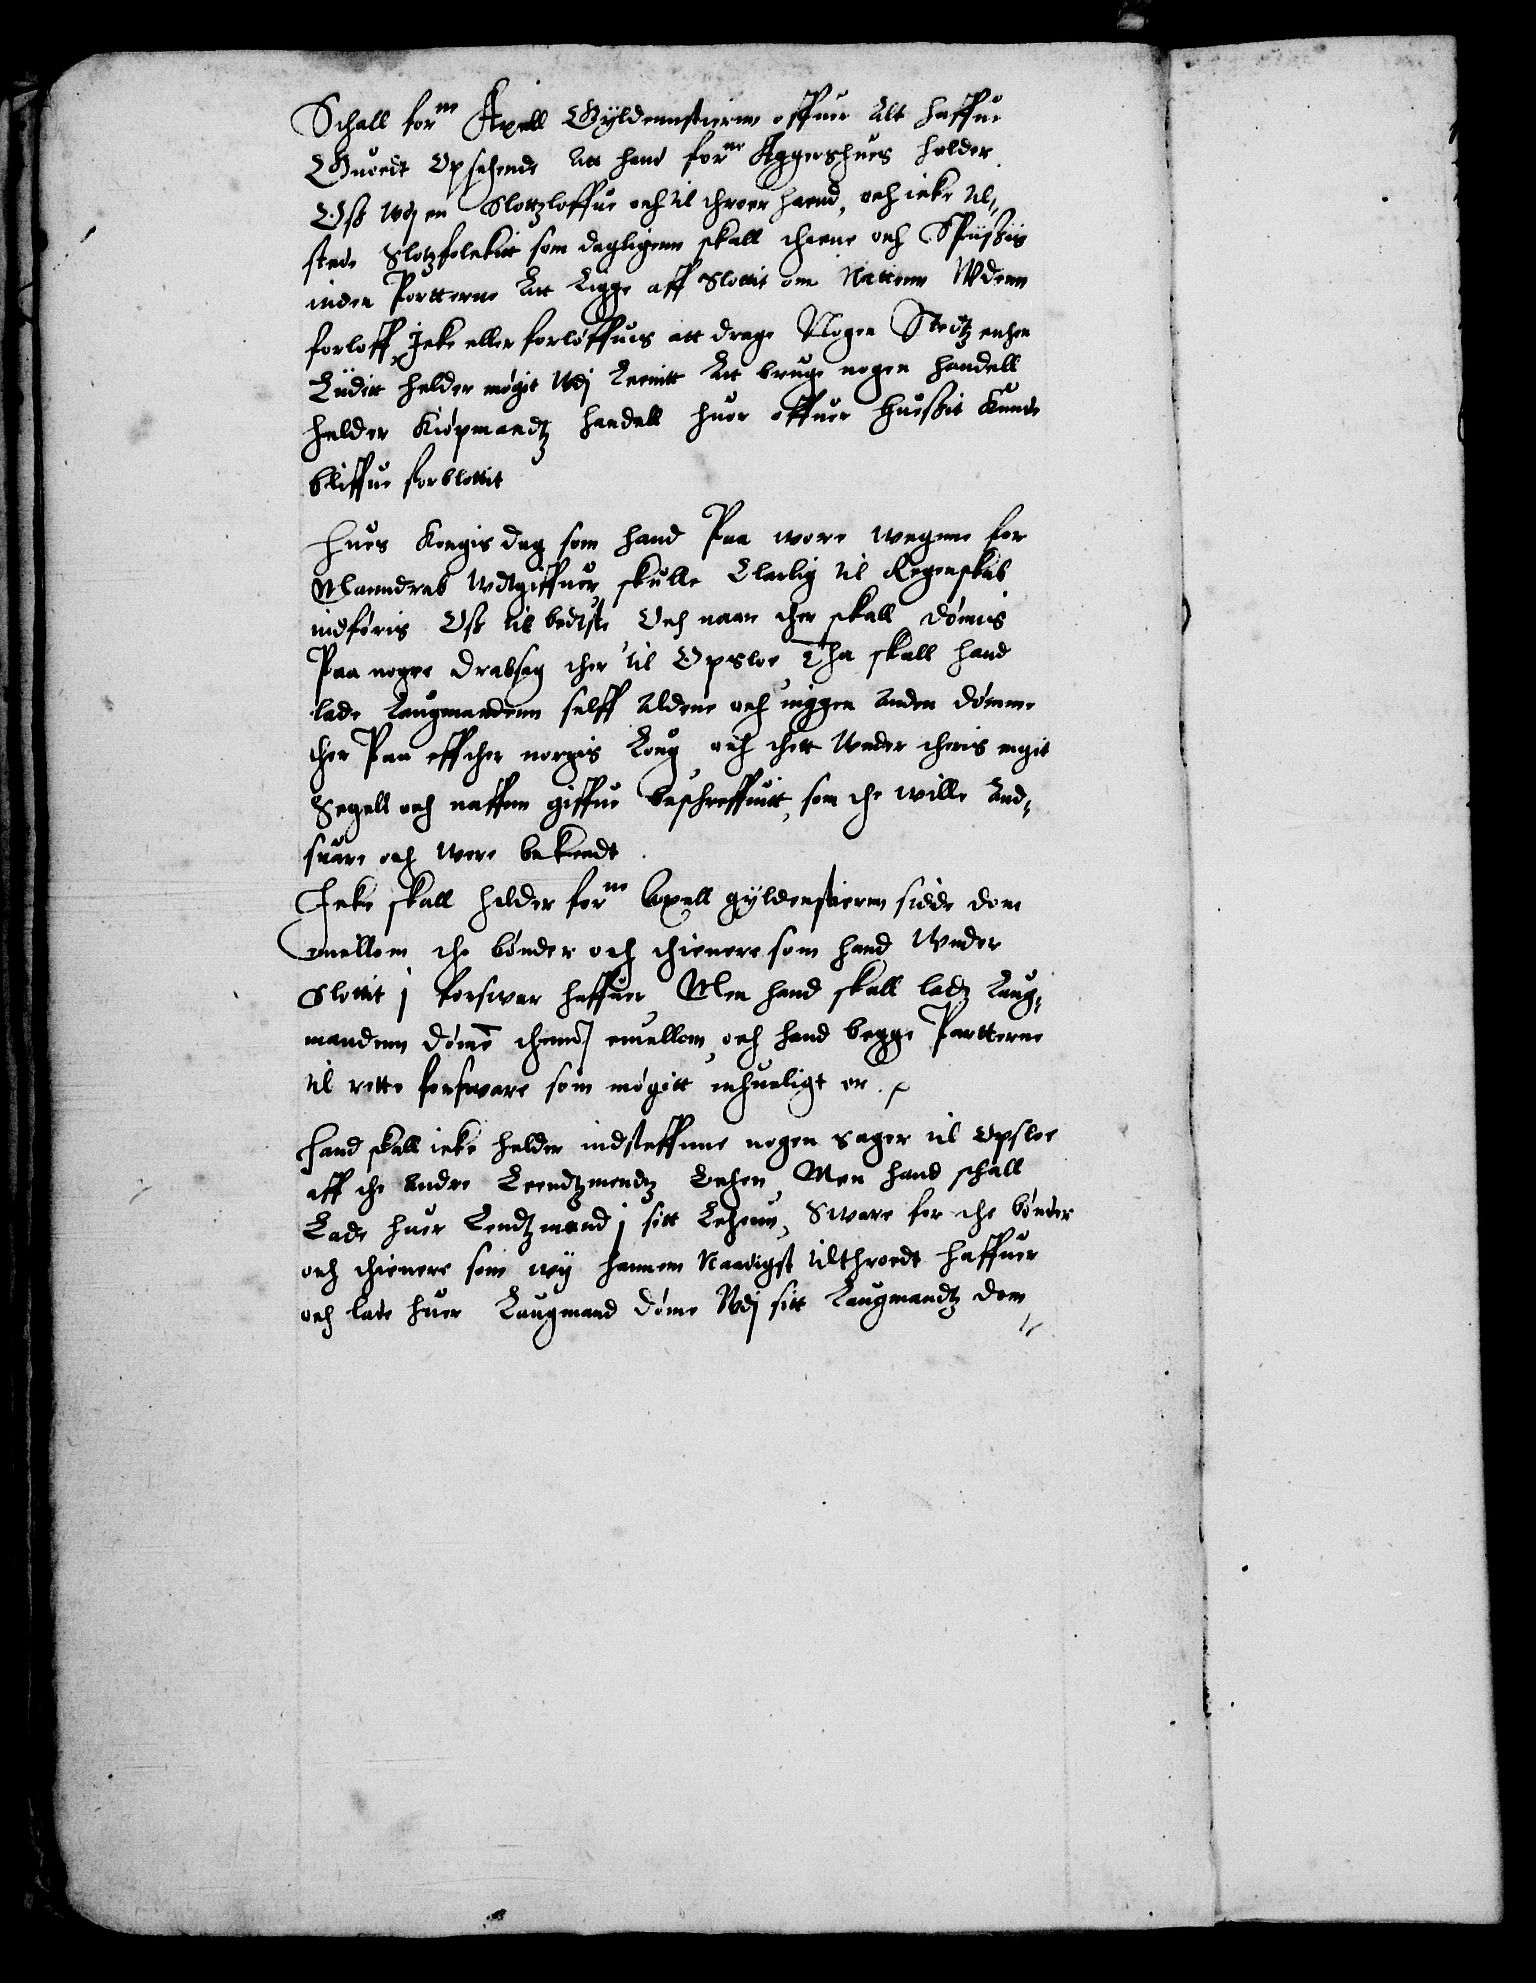 Schall forne Axell Gyldennstiernn offuer alt haffue
Guoedt Opsehende Att hand forne Aggershues holder
Osß wdj en Slottzloffue och til throer haand, och icke til,
stede Slotzfolckitt som dagligenn skall thiene och Spiißis
inden Portterne Att Ligge aff Slottit om Nattenn Wdenn
forloff, Icke eller forløffues att drage Nogen Stedtz enthen
Lüdett helder møgit Wdj Leenitt Att bruge nogen handell
helder Kiøpmandtz handell huor offuer Hueßit Kunde
bliffue forblottit
Hues Kongis dag som hand Paa wore wegenne for
Manndrab Wdtgiffuer, skulle Clarlig til Regenskab
indføris Osß til bedtste Och naar ther skall dømis
Paa nogre drabsag ther til Opsloe Tha skall hand
lade Laugmandenn selff Aldene och inggen Anden dømme
ther Paa effther norgis Loug, och thett Wnder theris egit
Segell och naffnn giffue beschreffuitt, som the wille And,
suare och were bekiendt.
Icke skall helder forne Axell gyldenstiernn sidde dom
emellom the bønder och thienere som hand Wnder
Slottit j forswar haffuer, Men hand skall ladz Laug,
mandenn døme thennom emellom, och hand begge Partterne
til rette forsware som møgitt mhueligt er.
Hand skall icke helder indsteffnne nogen sager til Opsloe
aff the Andre Leendtzmendtz Lehen, Men hand schall
Lade huer Lendtzmand j sitt Lehenn, Sware for the bønder
och thienere som wy hannem Naadigst tilthroedt haffuer
och lade huer Laugmand døme Wdj sitt Laugmandtz dom